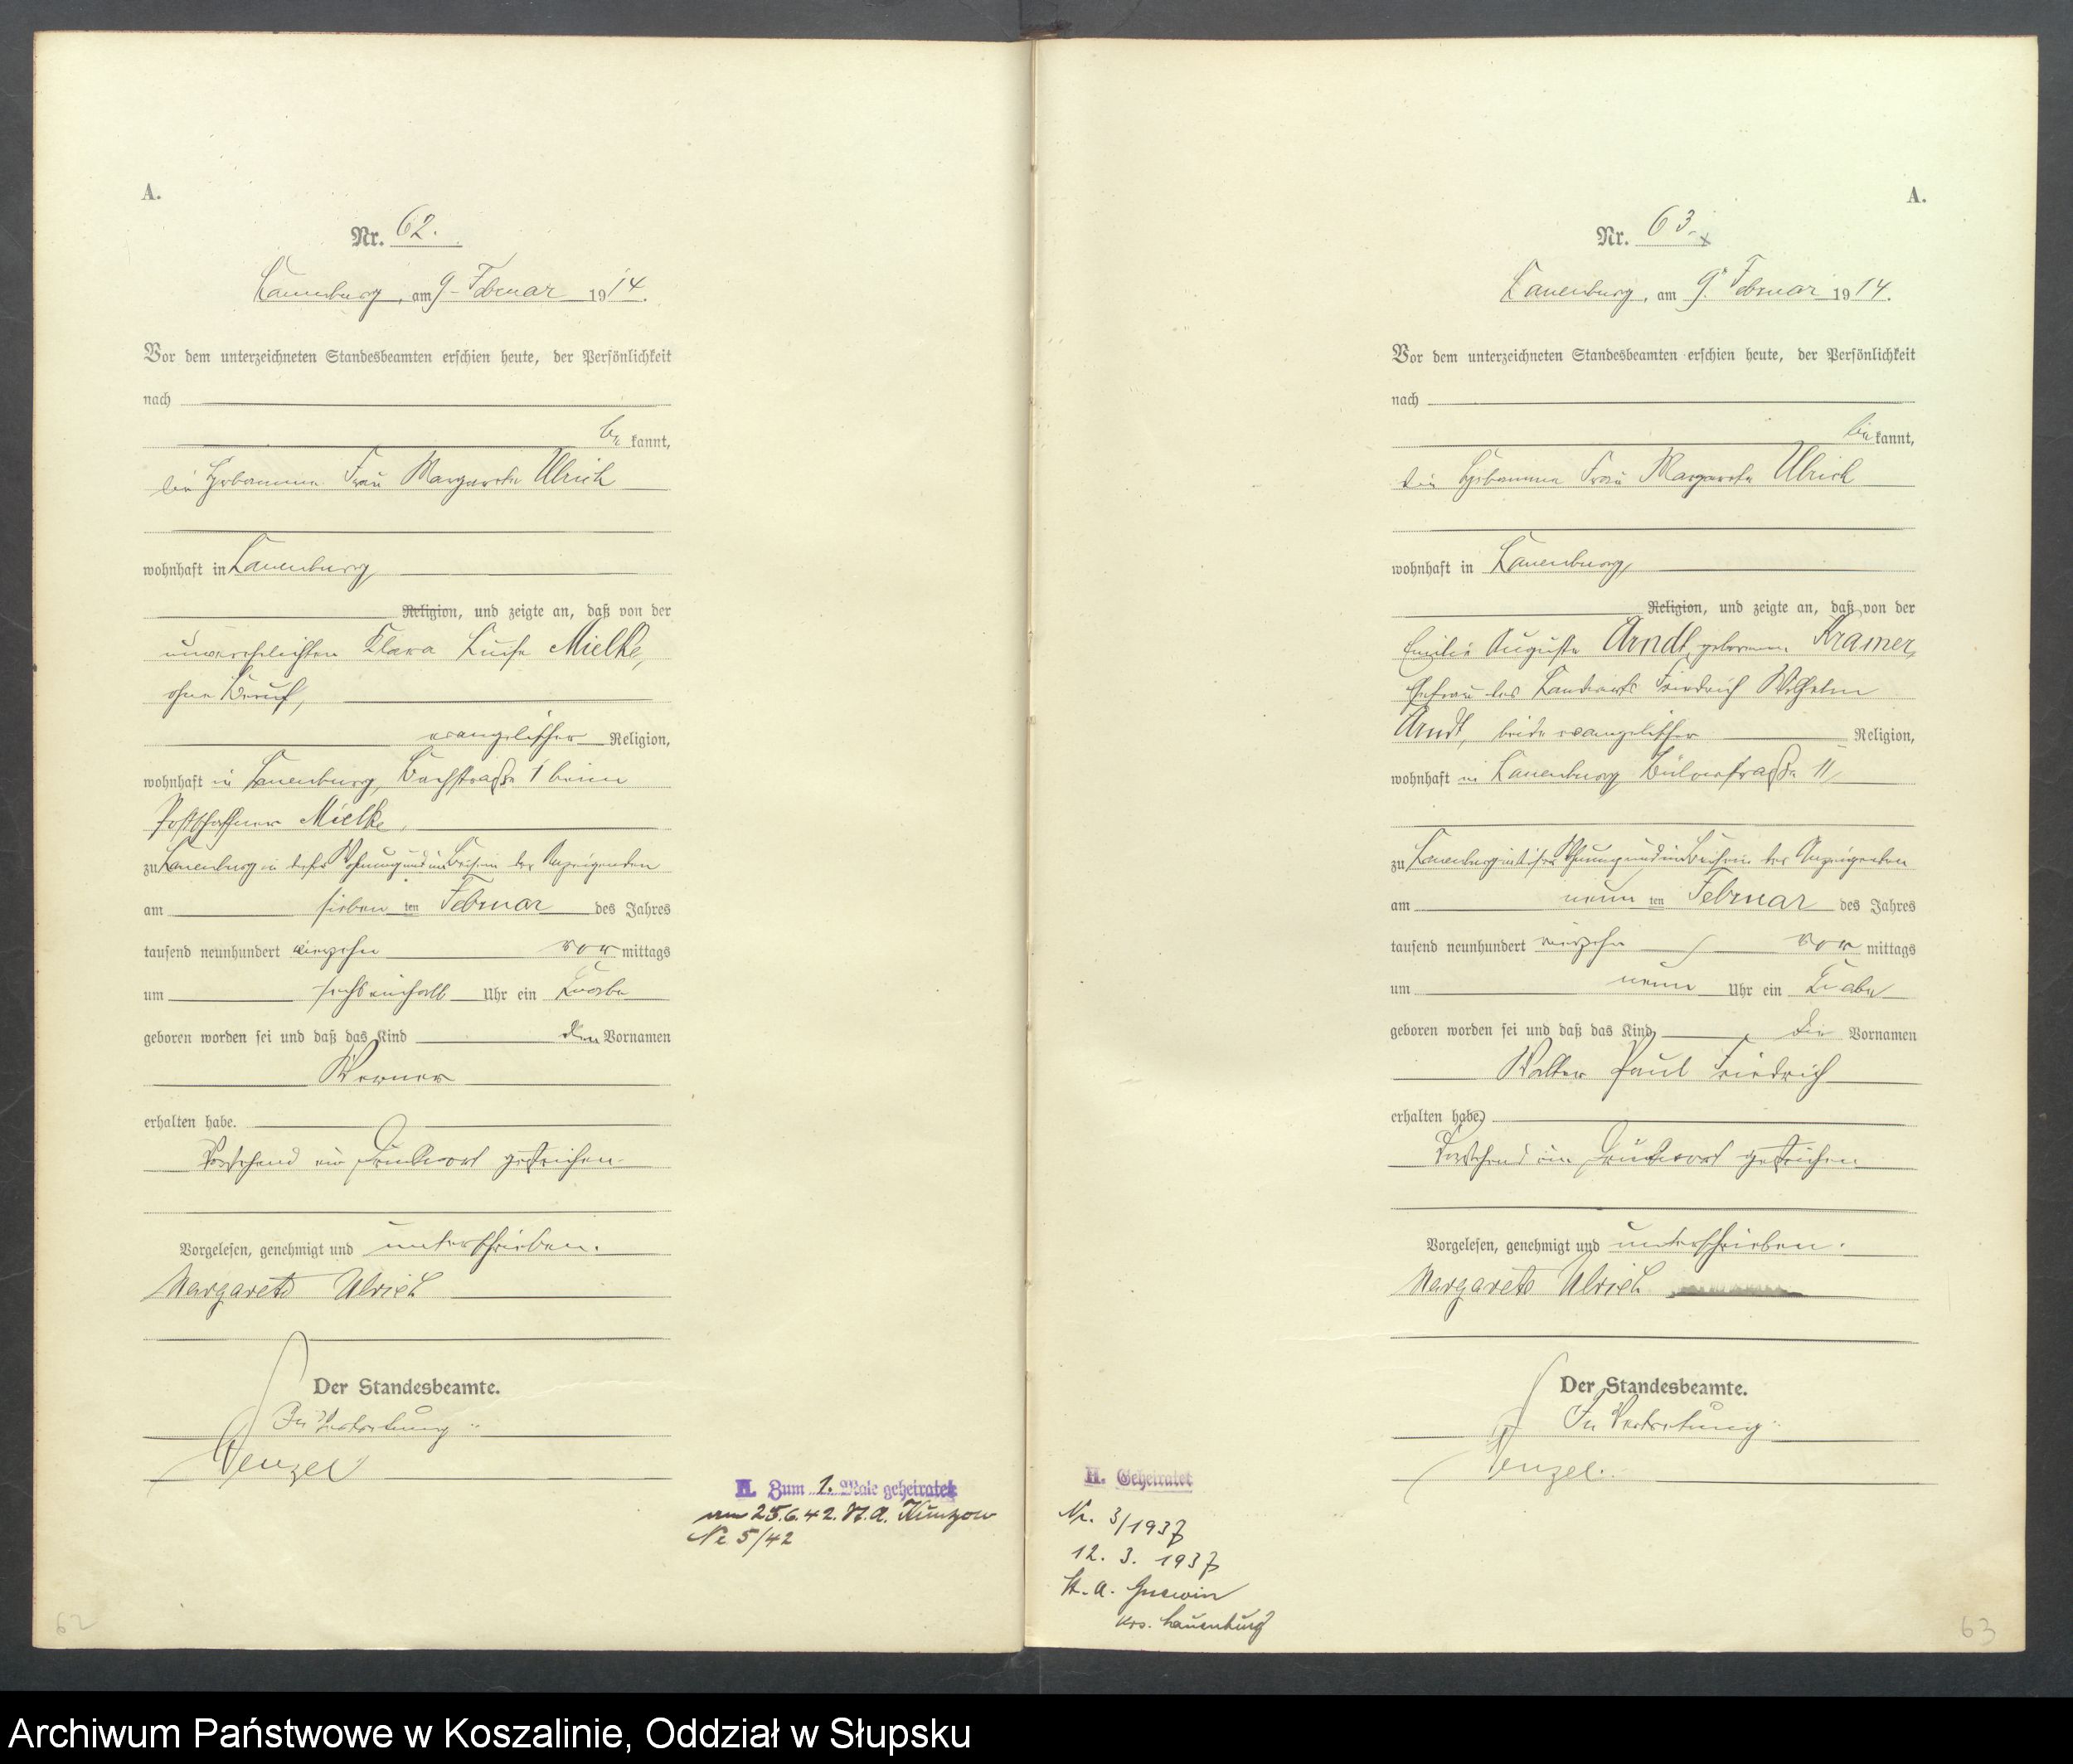 A.
Nr. 62.
Lauenburg, am 9. Februar 1914.
Vor dem unterzeichneten Standesbeamten erschien heute, der Persönlichkeit
nach
be kannt,
die Hebamme Frau Margarete Ulrich
wohnhaft in Lauenburg
Religion, und zeigte an, daß von der
unverehelichten Klara Luise Mielke,
ohne Beruf,
evangelischer Religion,
wohnhaft in Lauenburg, Bachstraße 1 beim
Postschaffner Mielke,
zu Lauenburg in dieser Wohnung und im Beisein der Anzeigenden
am sieben ten Februar des Jahres
tausend neunhundert vierzehn vor mittags
um sechseinhalb Uhr ein Knabe
geboren worden sei und daß das Kind den Vornamen
Werner
erhalten habe.
Vorstehend ein Druckwort gestrichen
Vorgelesen, genehmigt und unterschrieben.
Margarete Ulrich
Der Standesbeamte.
In Vertretung:
Wenzel
H. Zum 1. Male geheiratet
am 25.6.42. St.A.
Nr. 5/42
62
A.
Nr. 63.
Lauenburg, am 9. Februar 1914.
Vor dem unterzeichneten Standesbeamten erschien heute, der Persönlichkeit
nach
be kannt,
die Hebamme Frau Margarete Ulrich
wohnhaft in Lauenburg,
Religion, und zeigte an, daß von der
Emilie Auguste Arndt, geborenen Kramer,
Ehefrau des Landwirts Friedrich Wilhelm
Arndt, beide evangelischer Religion,
wohnhaft in Lauenburg Bülowstraße 11,
zu Lauenburg in dieser Wohnung und im Beisein der Anzeigenden
am neun ten Februar des Jahres
tausend neunhundert vierzehn vor mittags
um neun Uhr ein Knabe
geboren worden sei und daß das Kind die Vornamen
Walter Paul Friedrich
erhalten habe.
Vorstehend ein Druckwort gestrichen
Vorgelesen, genehmigt und unterschrieben.
Margarete Ulrich
Der Standesbeamte.
In Vertretung:
Wenzel.
H. Geheiratet
Nr. 3/1937
12. 3. 1937
St. A. Gnewin
Krs. Lauenburg
63
Archiwum Państwowe w Koszalinie, Oddział w Słupsku